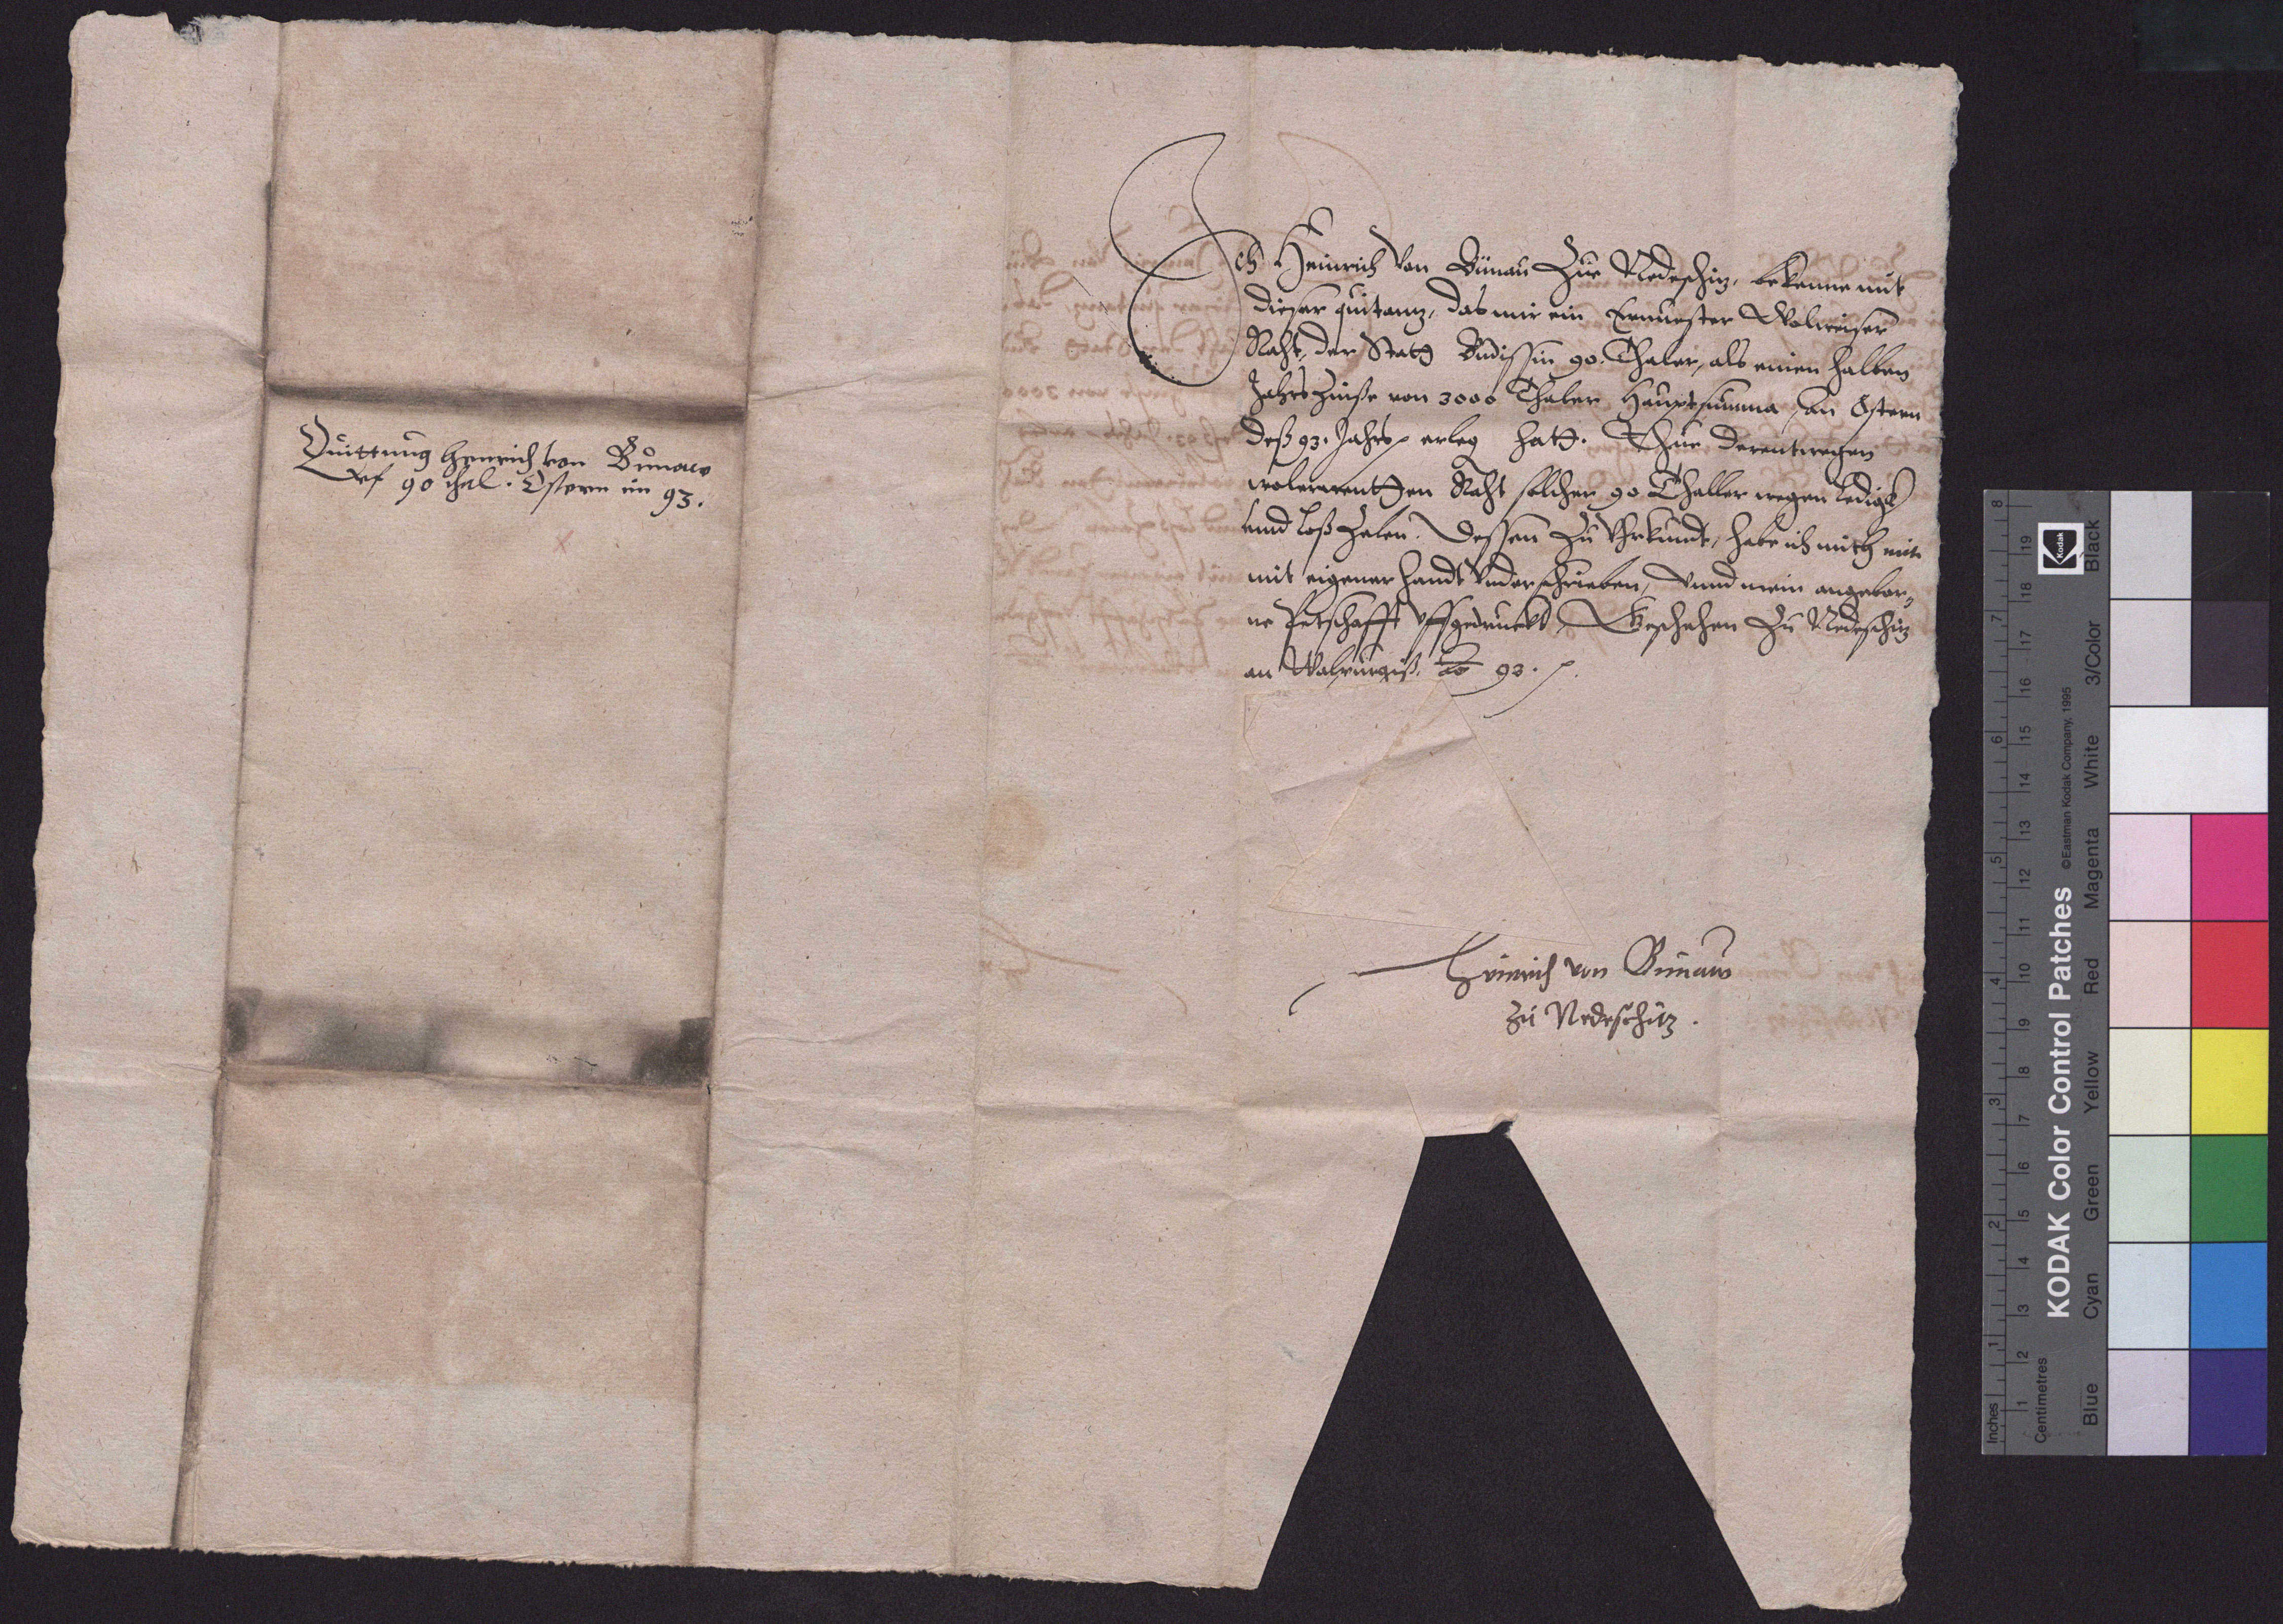 Quittung Heinrich von Bünaw
Auf 90 thal. Ostern im 93.
Ich Heinrich Von Bünau Zue Nedeschiz, bekenne mit
dieser quitanz, das mir ein Ernuester Wolweiser
Raht, der Stath Budissin 90. Thaler, als einen halben
Jahrs Zinße von 3000 Thaler Hauptsumma, an Ostern
deß 93. Jahrs erleg hath. Thue derentwegen
wolermenthen Raht solcher 90 Thaller wegen ledigk
unnd loß Zelen. Dessen Zu Vhrkundt, habe ich mich mit
mit eigener handt Underschrieben, Vnnd mein angebor,
ne Petschafft Uffgedruckt, Geschehen Zu Nedeschiz
an Walpurgiß. Ao 93.
Heinrich von Bünaw
Zu Nedeschitz.
KODAK Color Control Patches
© Eastman Kodak Company, 1995
Inches
Centimetres
Blue Cyan Green Yellow Red Magenta White 3/Color Black